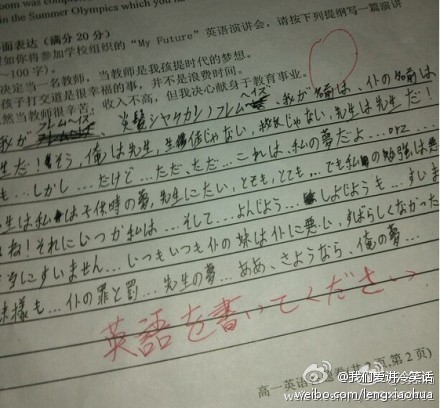 in the Summer Olympics which you ha
面表达（满分 20 分）
如你将参加学校组织的“My Future”英语演讲会，请按下列提纲写一篇演讲
~100字）。
决定当一名教师，当教师是我孩提时代的梦想。
孩子打交道是很幸福的事，并不是浪费时间。
然当教师很辛苦，收入不高，但我决心献身于教育事业。
生だ！そう，俺は先生，じゃない，じゃない，先生は先生だ！
も…しかし…だけど…ただ，ただ…これは，私の夢だよ…orz…
生は私は子供時の夢，先生にたい，とても，とても…でも私の勉強は悪
ね！それにいつか私は…そして…よんじよう…しよじようも…すいま
すいません…いつもいつも仆の妹は仆に悪い，すばらしくなかった
妹様も…仆の罪と罰…先生の夢…ああ，さようなら，俺の夢…
英語を書いてください
高一英语
第2页)
@我们爱讲冷笑话
weibo.com/lengxiaohua